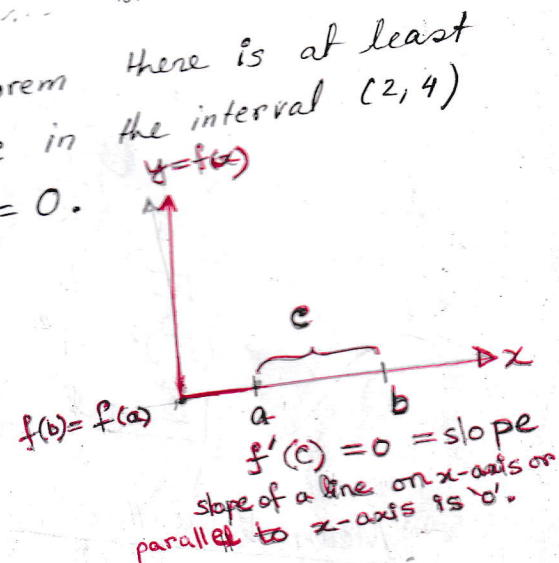 there is at least
rem
in the interval (2, 4)
= 0.
y=f(x)
c
x
f(b)= f(a)
a
b
f'(c) =0 =slope
slope of a line on x-axis or
parallel to x-axis is '0'.